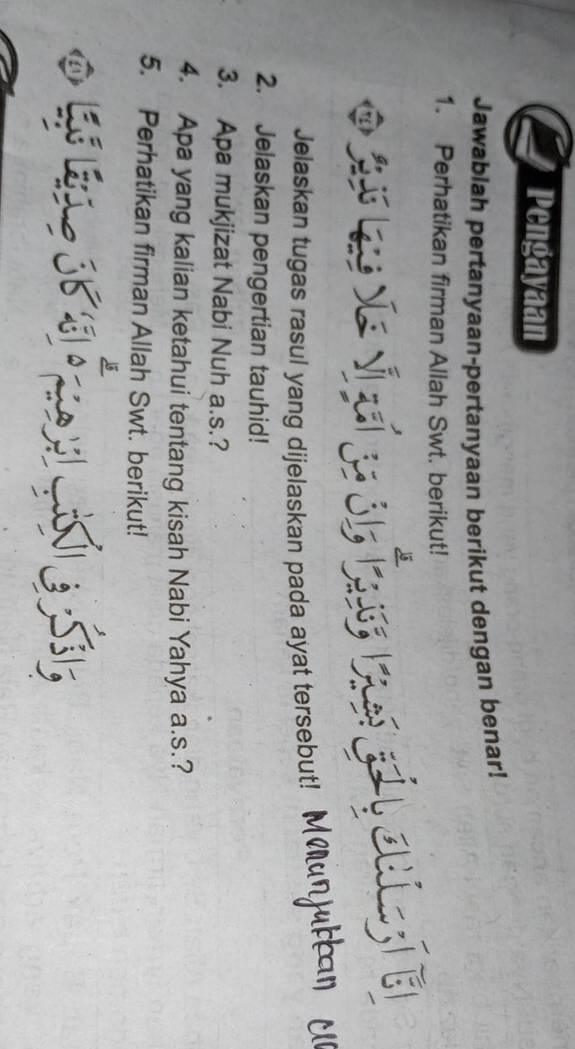 Pengayaan
Jawablah pertanyaan-pertanyaan berikut dengan benar!
1. Perhatikan firman Allah Swt. berikut!
اِنَّآ اَرْسَلْنٰكَ بِالْحَقِّ بَشِيْرًا وَّنَذِيْرًا ۗ وَاِنْ مِّنْ اُمَّةٍ اِلَّا خَلَا فِيْهَا نَذِيْرٌ ﴿٢٤﴾
Jelaskan tugas rasul yang dijelaskan pada ayat tersebut! Menunjukkan
2. Jelaskan pengertian tauhid!
3. Apa mukjizat Nabi Nuh a.s.?
4. Apa yang kalian ketahui tentang kisah Nabi Yahya a.s.?
5. Perhatikan firman Allah Swt. berikut!
وَاذْكُرْ فِى الْكِتٰبِ اِبْرٰهِيْمَ ەۗ اِنَّهٗ كَانَ صِدِّيْقًا نَّبِيًّا ﴿٤١﴾